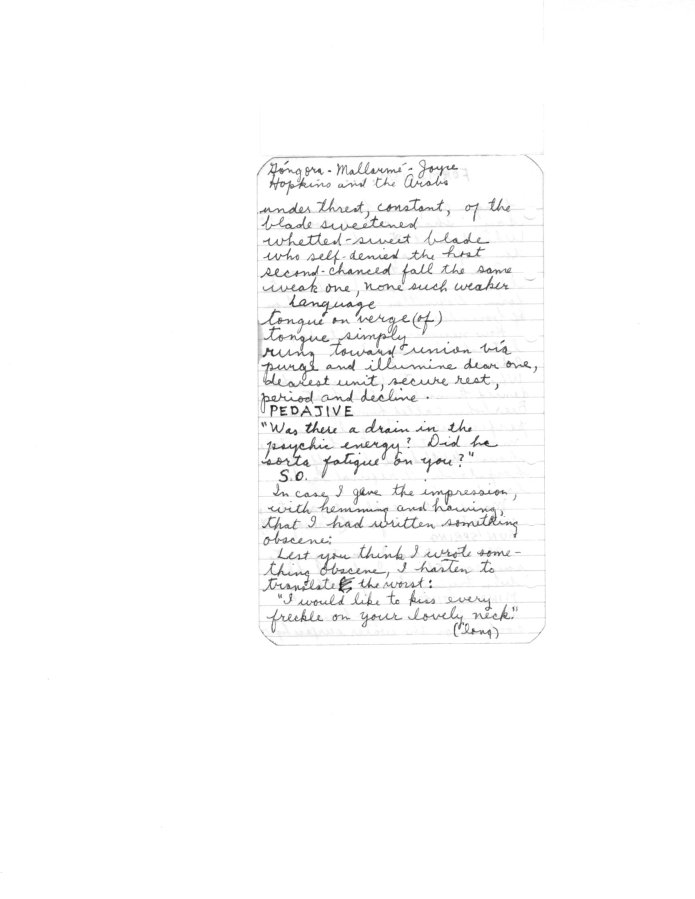 Góngora - Mallarmé - Joyce
Hopkins and the Arabs
under threat, constant, of the
blade sweetened
whetted-sweet blade
who self-denied the host
second-chanced fall the same
weak one, none such weaker
Language
tongue on verge (of)
tongue simply
rung toward union via
purge and illumine dear one,
dearest unit, secure rest,
period and decline.
PEDAJIVE
"Was there a drain in the
psychic energy? Did he
sorta fatigue on you?"
S.O.
In case I gave the impression,
with hemming and hawing,
that I had written something
obscene:
Lest you think I wrote some-
thing obscene, I hasten to
translate the worst:
"I would like to kiss every
freckle on your lovely neck."
("long)